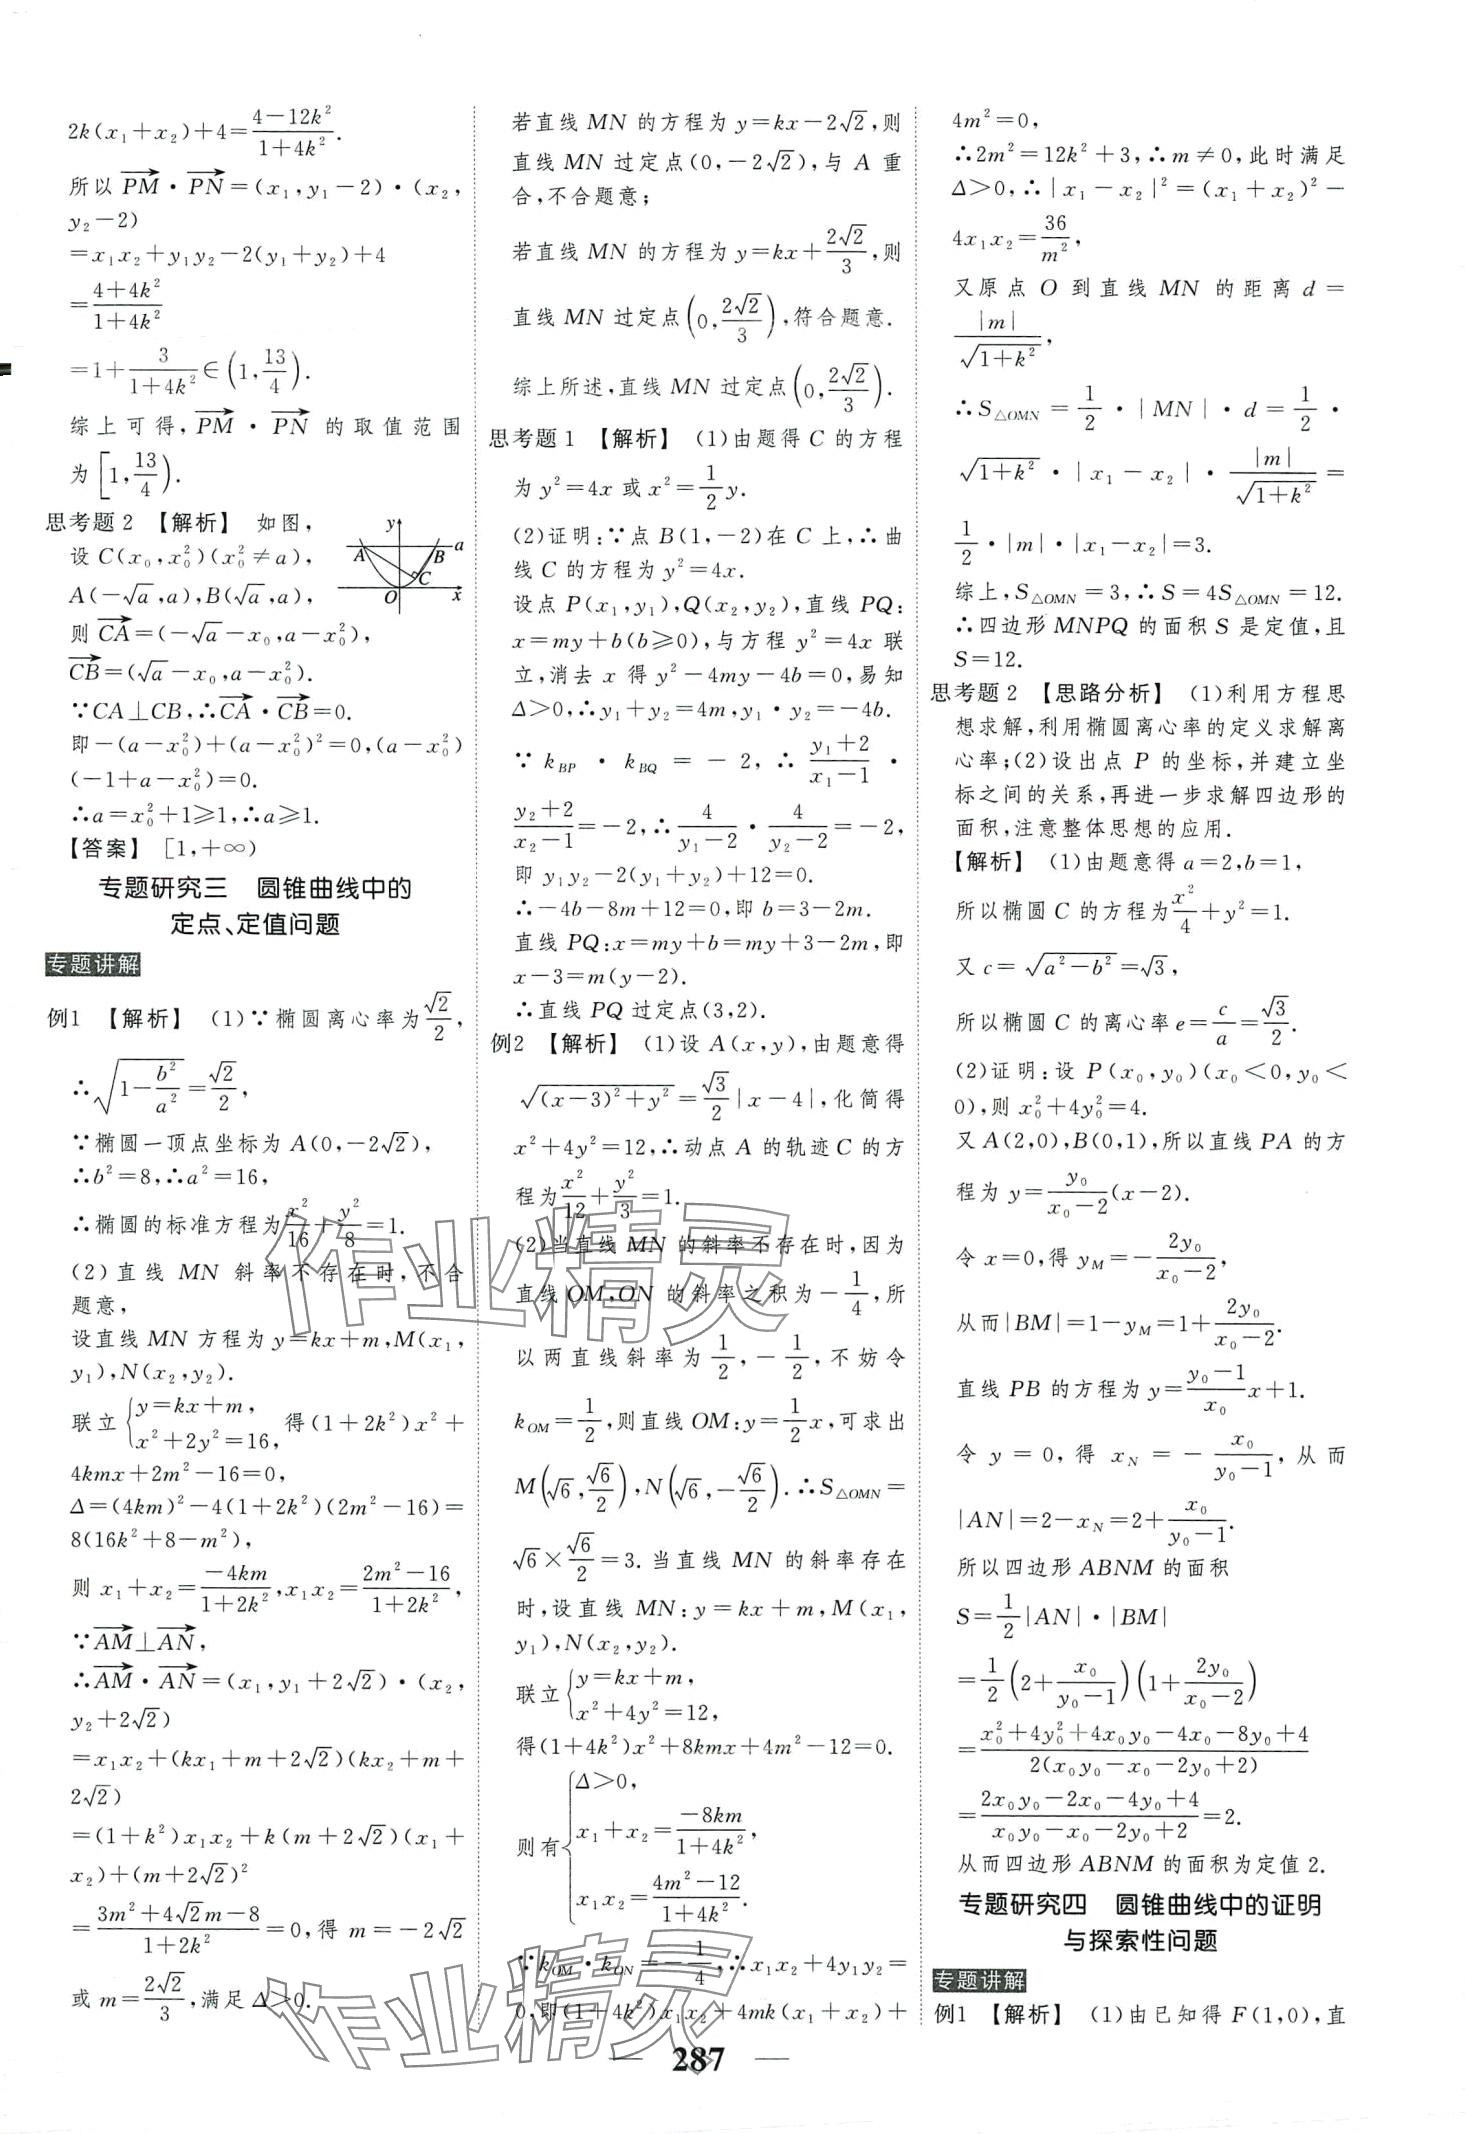 2k(x₁+x₂)+4=\frac{4-12k²}{1+4k²}.
所以\overrightarrow{PM}·\overrightarrow{PN}=(x₁,y₁-2)·(x₂,
y₂-2)
=x₁x₂+y₁y₂-2(y₁+y₂)+4
=\frac{4+4k²}{1+4k²}
=1+\frac{3}{1+4k²}∈(1,\frac{13}{4}).
综上可得,\overrightarrow{PM}·\overrightarrow{PN}的取值范围
为[1,\frac{13}{4}).
思考题2 【解析】 如图,
设C(x₀,x₀²)(x₀²≠a),
A(-√a,a),B(√a,a),
则\overrightarrow{CA}=(-√a-x₀,a-x₀²),
\overrightarrow{CB}=(√a-x₀,a-x₀²).
y A B a C O x
∵CA⊥CB,∴\overrightarrow{CA}·\overrightarrow{CB}=0.
即-(a-x₀²)+(a-x₀²)²=0,(a-x₀²)
(-1+a-x₀²)=0.
∴a=x₀²+1≥1,∴a≥1.
【答案】 [1,+∞)
专题研究三 圆锥曲线中的
定点、定值问题
专题讲解
例1 【解析】 (1)∵椭圆离心率为\frac{√2}{2},
∴\sqrt{1-\frac{b²}{a²}}=\frac{√2}{2},
∵椭圆一顶点坐标为A(0,-2√2),
∴b²=8,∴a²=16,
∴椭圆的标准方程为\frac{x²}{16}+\frac{y²}{8}=1.
(2)直线MN斜率不存在时,不合
题意,
设直线MN方程为y=kx+m,M(x₁,
y₁),N(x₂,y₂).
联立{y=kx+m, x²+2y²=16, 得(1+2k²)x²+
4kmx+2m²-16=0,
Δ=(4km)²-4(1+2k²)(2m²-16)=
8(16k²+8-m²),
则x₁+x₂=\frac{-4km}{1+2k²},x₁x₂=\frac{2m²-16}{1+2k²},
∵\overrightarrow{AM}⊥\overrightarrow{AN},
∴\overrightarrow{AM}·\overrightarrow{AN}=(x₁,y₁+2√2)·(x₂,
y₂+2√2)
=x₁x₂+(kx₁+m+2√2)(kx₂+m+
2√2)
=(1+k²)x₁x₂+k(m+2√2)(x₁+
x₂)+(m+2√2)²
=\frac{3m²+4√2m-8}{1+2k²}=0,得m=-2√2
或m=\frac{2√2}{3},满足Δ>0.
若直线MN的方程为y=kx-2√2,则
直线MN过定点(0,-2√2),与A重
合,不合题意;
若直线MN的方程为y=kx+\frac{2√2}{3},则
直线MN过定点(0,\frac{2√2}{3}),符合题意.
综上所述,直线MN过定点(0,\frac{2√2}{3}).
思考题1 【解析】 (1)由题得C的方程
为y²=4x或x²=\frac{1}{2}y.
(2)证明:∵点B(1,-2)在C上,∴曲
线C的方程为y²=4x.
设点P(x₁,y₁),Q(x₂,y₂),直线PQ:
x=my+b(b≥0),与方程y²=4x联
立,消去x得y²-4my-4b=0,易知
Δ>0,∴y₁+y₂=4m,y₁·y₂=-4b.
∵k_{BP}·k_{BQ}=-2,∴\frac{y₁+2}{x₁-1}·
\frac{y₂+2}{x₂-1}=-2,∴\frac{4}{y₁-2}·\frac{4}{y₂-2}=-2,
即y₁y₂-2(y₁+y₂)+12=0.
∴-4b-8m+12=0,即b=3-2m.
直线PQ:x=my+b=my+3-2m,即
x-3=m(y-2).
∴直线PQ过定点(3,2).
例2 【解析】 (1)设A(x,y),由题意得
\sqrt{(x-3)²+y²}=\frac{√3}{2}|x-4|,化简得
x²+4y²=12,∴动点A的轨迹C的方
程为\frac{x²}{12}+\frac{y²}{3}=1.
(2)当直线MN的斜率不存在时,因为
直线OM,ON的斜率之积为-\frac{1}{4},所
以两直线斜率为\frac{1}{2},-\frac{1}{2},不妨令
k_{OM}=\frac{1}{2},则直线OM:y=\frac{1}{2}x,可求出
M(√6,\frac{√6}{2}),N(√6,-\frac{√6}{2}).∴S_{△OMN}=
√6×\frac{√6}{2}=3.当直线MN的斜率存在
时,设直线MN:y=kx+m,M(x₁,
y₁),N(x₂,y₂).
联立{y=kx+m, x²+4y²=12,
得(1+4k²)x²+8kmx+4m²-12=0.
则有{Δ>0, x₁+x₂=\frac{-8km}{1+4k²}, x₁x₂=\frac{4m²-12}{1+4k²}.
∵k_{OM}·k_{ON}=-\frac{1}{4},∴x₁x₂+4y₁y₂=
0,即(1+4k²)x₁x₂+4mk(x₁+x₂)+
4m²=0,
∴2m²=12k²+3,∴m≠0,此时满足
Δ>0,∴|x₁-x₂|²=(x₁+x₂)²-
4x₁x₂=\frac{36}{m²},
又原点O到直线MN的距离d=
\frac{|m|}{\sqrt{1+k²}},
∴S_{△OMN}=\frac{1}{2}·|MN|·d=\frac{1}{2}·
\sqrt{1+k²}·|x₁-x₂|·\frac{|m|}{\sqrt{1+k²}}=
\frac{1}{2}·|m|·|x₁-x₂|=3.
综上,S_{△OMN}=3,∴S=4S_{△OMN}=12.
∴四边形MNPQ的面积S是定值,且
S=12.
思考题2 【思路分析】 (1)利用方程思
想求解,利用椭圆离心率的定义求解离
心率;(2)设出点P的坐标,并建立坐
标之间的关系,再进一步求解四边形的
面积,注意整体思想的应用.
【解析】 (1)由题意得a=2,b=1,
所以椭圆C的方程为\frac{x²}{4}+y²=1.
又c=\sqrt{a²-b²}=√3,
所以椭圆C的离心率e=\frac{c}{a}=\frac{√3}{2}.
(2)证明:设P(x₀,y₀)(x₀<0,y₀<
0),则x₀²+4y₀²=4.
又A(2,0),B(0,1),所以直线PA的方
程为y=\frac{y₀}{x₀-2}(x-2).
令x=0,得y_M=-\frac{2y₀}{x₀-2},
从而|BM|=1-y_M=1+\frac{2y₀}{x₀-2}.
直线PB的方程为y=\frac{y₀-1}{x₀}x+1.
令y=0,得x_N=-\frac{x₀}{y₀-1},从而
|AN|=2-x_N=2+\frac{x₀}{y₀-1}.
所以四边形ABNM的面积
S=\frac{1}{2}|AN|·|BM|
=\frac{1}{2}(2+\frac{x₀}{y₀-1})(1+\frac{2y₀}{x₀-2})
=\frac{x₀²+4y₀²+4x₀y₀-4x₀-8y₀+4}{2(x₀y₀-x₀-2y₀+2)}
=\frac{2x₀y₀-2x₀-4y₀+4}{x₀y₀-x₀-2y₀+2}=2.
从而四边形ABNM的面积为定值2.
专题研究四 圆锥曲线中的证明
与探索性问题
专题讲解
例1 【解析】 (1)由已知得F(1,0),直
— 287 —
作业精灵
作业精灵